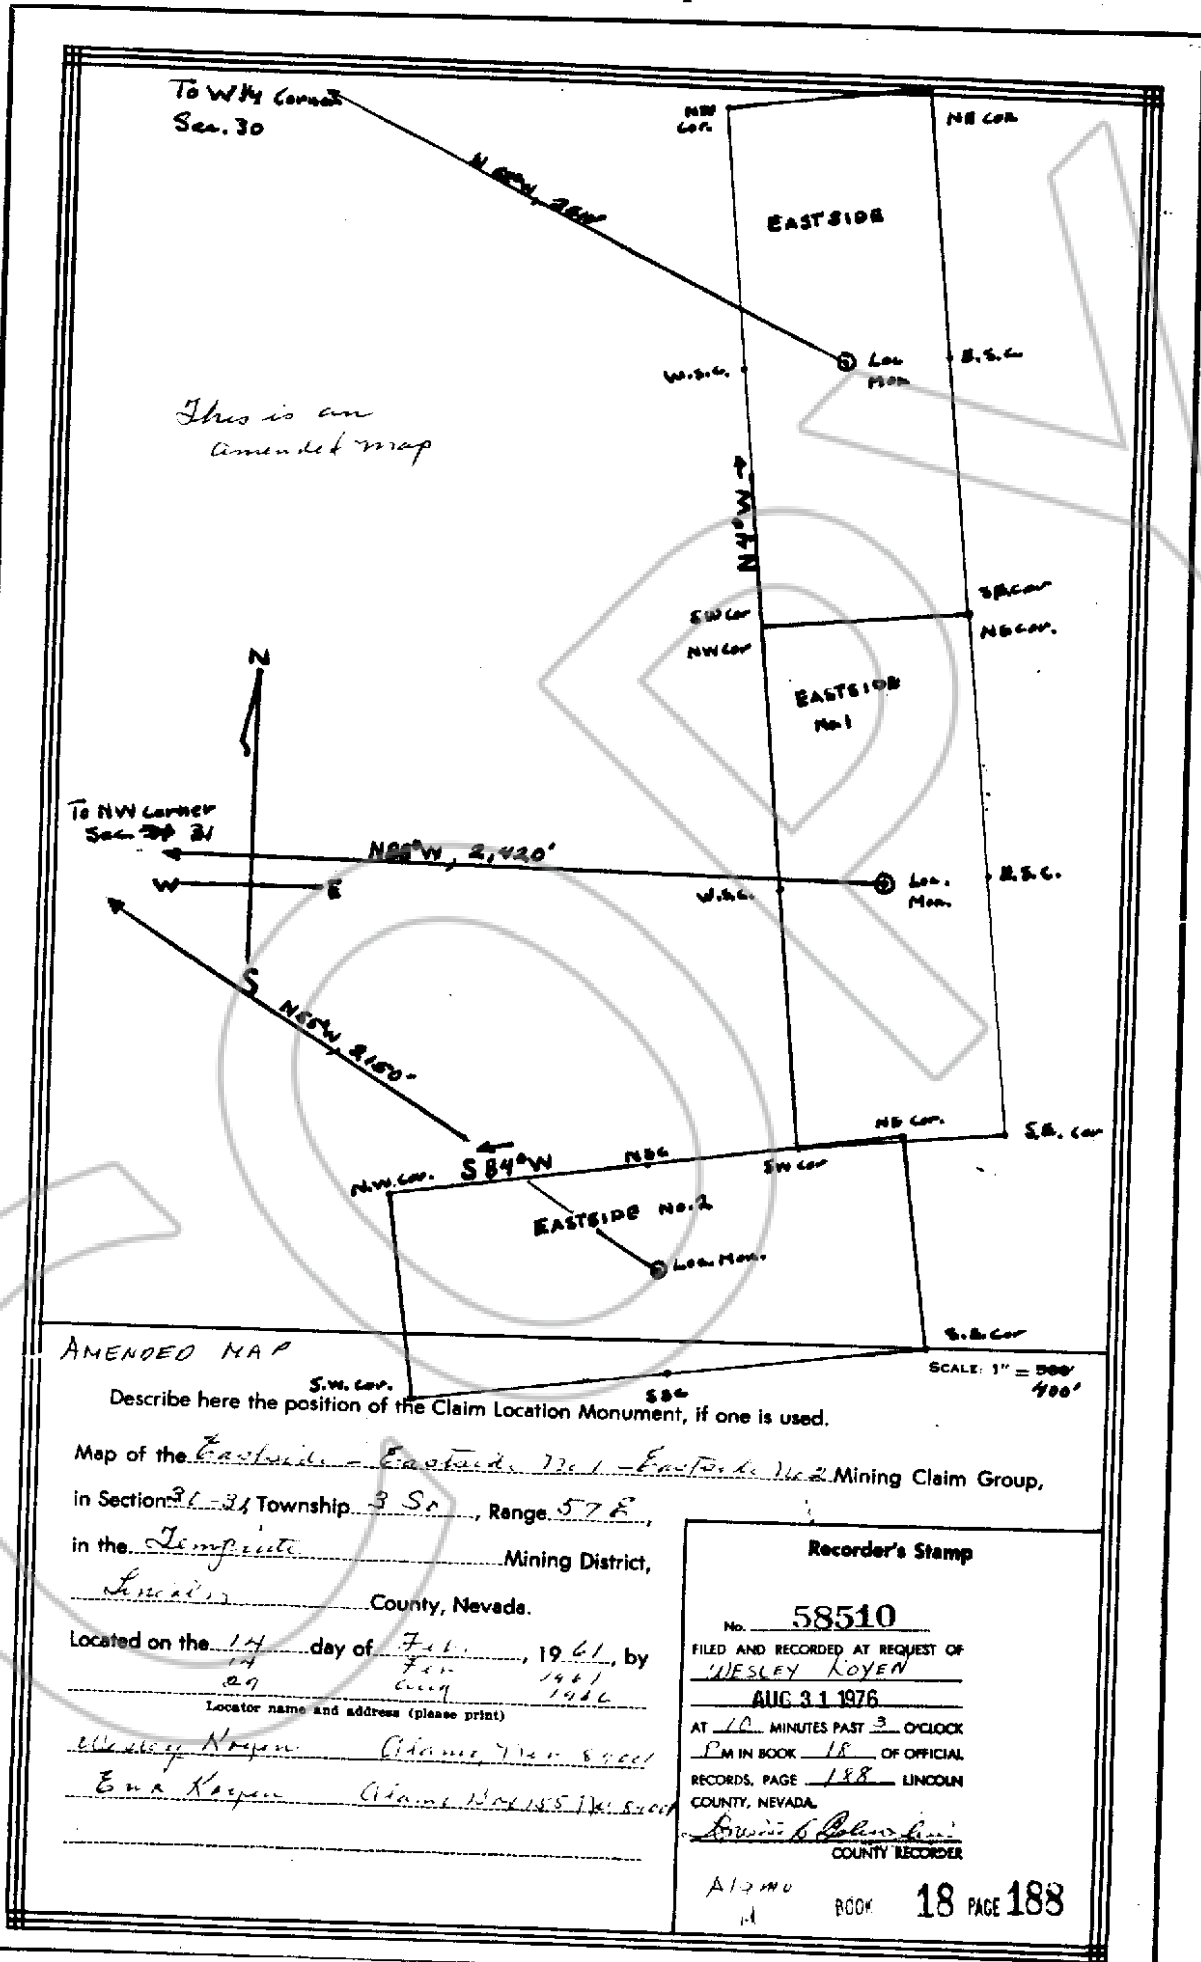 To W 1/4 Corner
Sec. 30
NW
Cor.
NE Cor.
EASTSIDE
Loc.
Mon.
W.S.C.
E.S.C.
This is an
amended map
N4°W
SW Cor
SE Cor
NW Cor
NE Cor.
EASTSIDE
No. 1
N
To NW Corner
Sec. 31
N88°W, 2,420'
W
E
W.S.C.
Loc.
Mon.
E.S.C.
S
N55°W, 2150'
S 84° W
N.W. Cor.
NSC
SW Cor
NE Cor.
S.E. Cor
EASTSIDE No. 2
Loc. Mon.
S.E. Cor
AMENDED MAP
SCALE: 1" = 500'
400'
S.W. Cor.
SSC
Describe here the position of the Claim Location Monument, if one is used.
Map of the Eastside - Eastside No 1 - Eastside No 2 Mining Claim Group,
in Section 31, Township 3 So, Range 57 E,
in the Tempiute Mining District,
Lincoln County, Nevada.
Located on the 14 day of Feb., 1961, by
14 Feb 1961
29 Aug 1966
Locator name and address (please print)
Wesley Koyen Alamo, Nev
Koyen Alamo Box 155
Recorder's Stamp
No. 58510
FILED AND RECORDED AT REQUEST OF
WESLEY KOYEN
AUG 31 1976
AT 10 MINUTES PAST 3 O'CLOCK
P M IN BOOK 18 OF OFFICIAL
RECORDS, PAGE 188 LINCOLN
COUNTY, NEVADA.
COUNTY RECORDER
Alamo
BOOK 18 PAGE 188
COPY